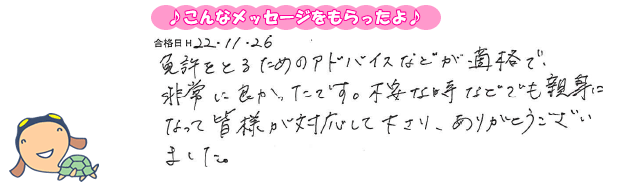 ♪こんなメッセージをもらったよ♪
合格日 H 22・11・26
免許をとるためのアドバイスなどが適格で、
非常に良かったです。不安な時などでも親身に
なって皆様が対応して下さり、ありがとうござい
ました。